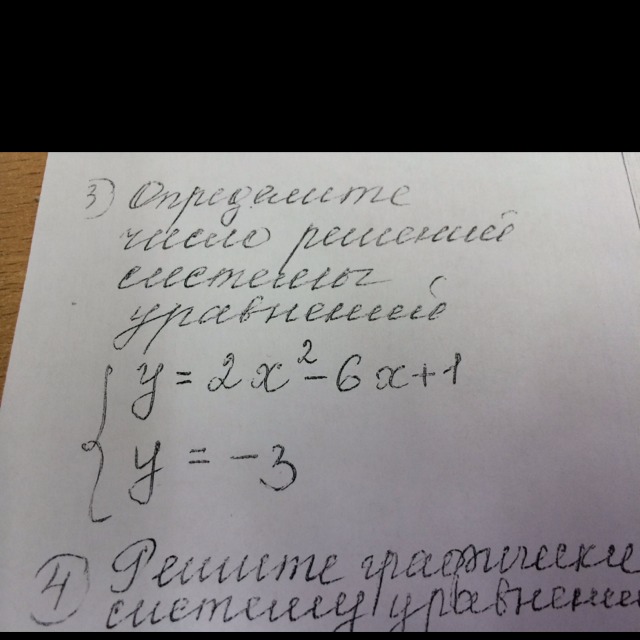 3) Определите
число решений
системы
уравнений
{ y = 2x² - 6x + 1
y = -3
4) Решите графически
систему уравнени